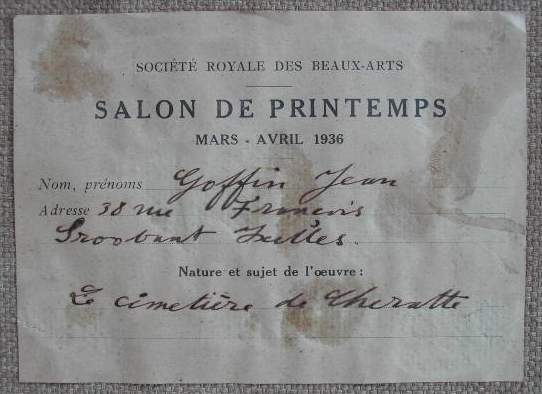 SOCIÉTÉ ROYALE DES BEAUX-ARTS
SALON DE PRINTEMPS
MARS - AVRIL 1936
Nom, prénoms Goffin Jean
Adresse 38 rue François
Stroobant Ixelles.
Nature et sujet de l'œuvre :
Le cimetière de Cheratte